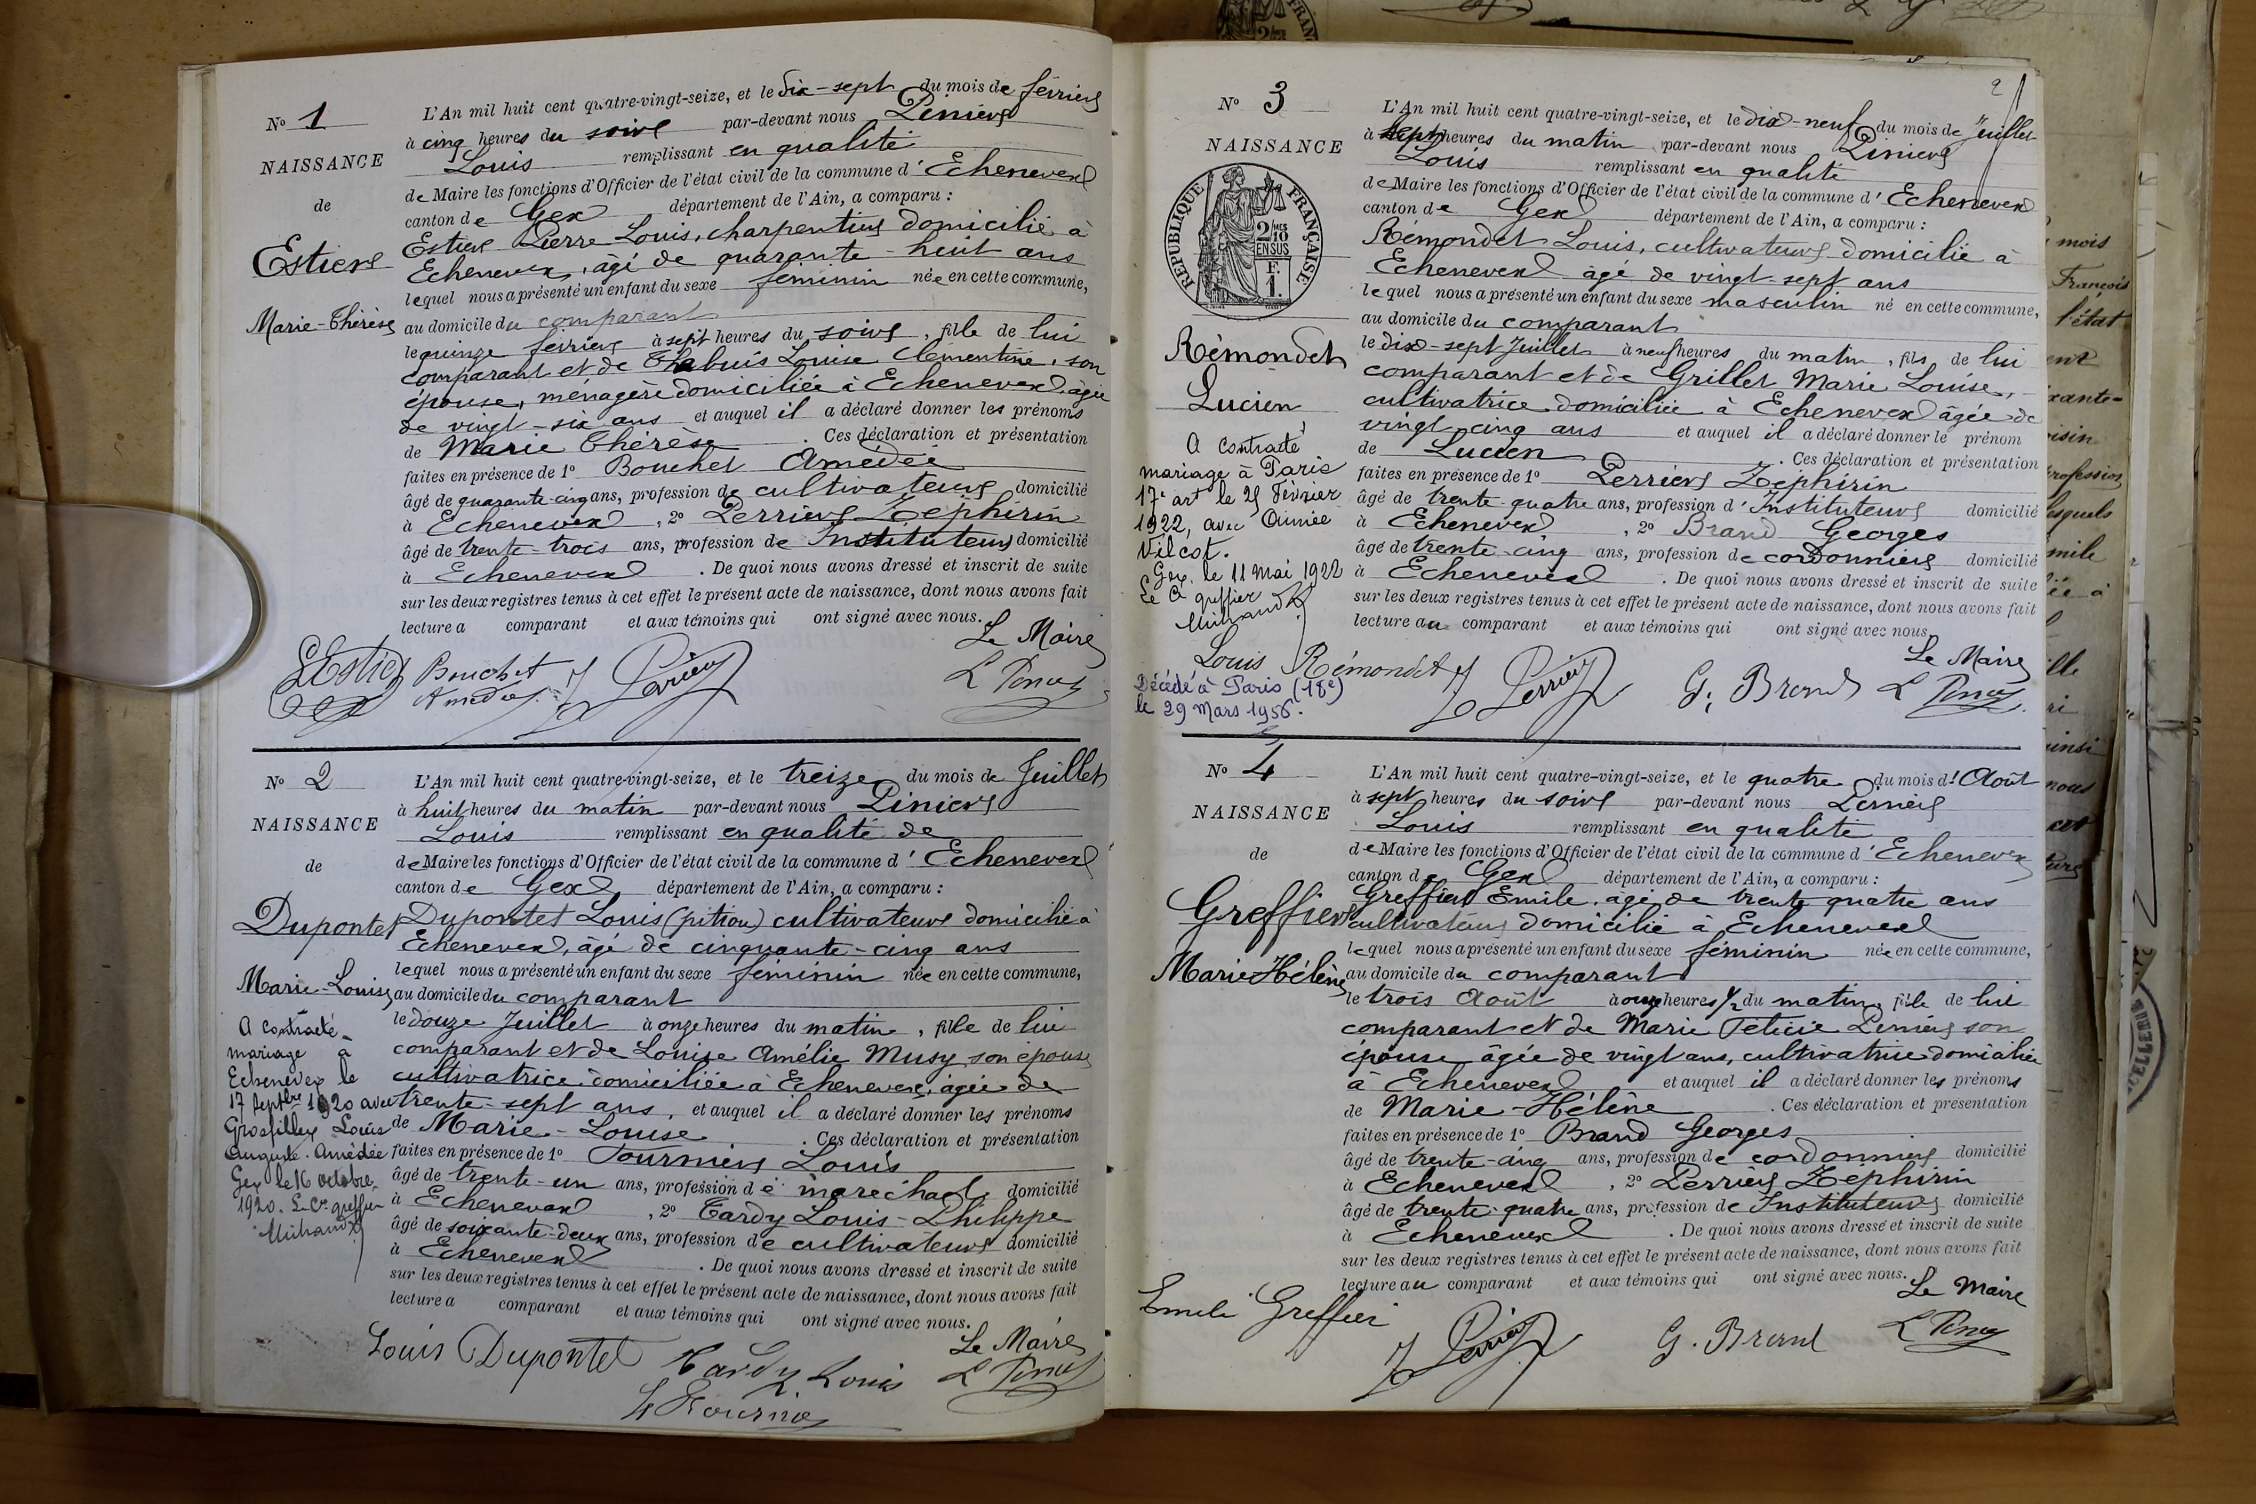 N° 1
NAISSANCE
de
Estier
Marie-Thérèse
L'An mil huit cent quatre-vingt-seize, et le dix-sept du mois de février
à cinq heures du soir par-devant nous Piniers
Louis remplissant en qualité
de Maire les fonctions d'Officier de l'état civil de la commune d'Echenevex
canton de Gex département de l'Ain, a comparu :
Estier Pierre Louis, charpentier domicilié à
Echenevex, âgé de quarante-huit ans
lequel nous a présenté un enfant du sexe féminin née en cette commune,
au domicile du comparant
le quinze février à sept heures du soir, fille de lui
comparant et de Louise Clémentine, son
épouse, ménagère domiciliée à Echenevex, âgée
de vingt-six ans et auquel il a déclaré donner les prénoms
de Marie Thérèse . Ces déclaration et présentation
faites en présence de 1° Bouchet Amédée
âgé de quarante-cinq ans, profession de cultivateur domicilié
à Echenevex, 2° Perrier Zéphirin
âgé de trente-trois ans, profession de Instituteur domicilié
à Echenevex . De quoi nous avons dressé et inscrit de suite
sur les deux registres tenus à cet effet le présent acte de naissance, dont nous avons fait
lecture a comparant et aux témoins qui ont signé avec nous.
Le Maire
Estier Bouchet
Amédée
N° 2
NAISSANCE
de
Dupontet
Marie-Louise
A contracté
mariage à
Echenevex le
17 Septbre 1920 avec
Grosfillex Louis
Auguste-Amédée
Gex le 16 octobre
1920. Le Cis greffier
L'An mil huit cent quatre-vingt-seize, et le treize du mois de Juillet
à huit heures du matin par-devant nous Piniers
Louis remplissant en qualité de
de Maire les fonctions d'Officier de l'état civil de la commune d'Echenevex
canton de Gex département de l'Ain, a comparu :
Dupontet Louis (pitiou) cultivateur domicilié à
Echenevex, âgé de cinquante-cinq ans
lequel nous a présenté un enfant du sexe féminin née en cette commune,
au domicile du comparant
le douze Juillet à onze heures du matin, fille de lui
comparant et de Louise Amélie Musy son épouse
cultivatrice domiciliée à Echenevex, âgée de
trente-sept ans, et auquel il a déclaré donner les prénoms
de Marie-Louise . Ces déclaration et présentation
faites en présence de 1° Fournier Louis
âgé de trente-un ans, profession de maréchal domicilié
à Echenevex, 2° Tardy Louis-Philippe
âgé de soixante-deux ans, profession de cultivateur domicilié
à Echenevex . De quoi nous avons dressé et inscrit de suite
sur les deux registres tenus à cet effet le présent acte de naissance, dont nous avons fait
lecture a comparant et aux témoins qui ont signé avec nous.
Le Maire
Louis Dupontet Tardy Louis
Fournier
2
N° 3
NAISSANCE
RÉPUBLIQUE FRANÇAISE
2/10 EN SUS
F. 1.
Rémondet
Lucien
A contracté
mariage à Paris
17e art le 25 Février
1922, avec Aimée
Vilcot.
Gex, le 11 mai 1922
Le Cis greffier
Décédé à Paris (18e)
le 29 Mars 1956.
L'An mil huit cent quatre-vingt-seize, et le dix-neuf du mois de Juillet
à sept heures du matin par-devant nous Piniers
Louis remplissant en qualité
de Maire les fonctions d'Officier de l'état civil de la commune d'Echenevex
canton de Gex département de l'Ain, a comparu :
Rémondet Louis, cultivateur domicilié à
Echenevex âgé de vingt-sept ans
lequel nous a présenté un enfant du sexe masculin né en cette commune,
au domicile du comparant
le dix-sept Juillet à neuf heures du matin, fils de lui
comparant et de Grillet Marie Louise,
cultivatrice domiciliée à Echenevex âgée de
vingt-cinq ans et auquel il a déclaré donner le prénom
de Lucien . Ces déclaration et présentation
faites en présence de 1° Perrier Zéphirin
âgé de trente-quatre ans, profession d'Instituteur domicilié
à Echenevex, 2° Brand Georges
âgé de trente-cinq ans, profession de cordonnier domicilié
à Echenevex . De quoi nous avons dressé et inscrit de suite
sur les deux registres tenus à cet effet le présent acte de naissance, dont nous avons fait
lecture au comparant et aux témoins qui ont signé avec nous.
Le Maire
Louis Rémondet G. Brand
N° 4
NAISSANCE
de
Greffier
Marie Hélène
L'An mil huit cent quatre-vingt-seize, et le quatre du mois d'Août
à sept heures du soir par-devant nous
Louis remplissant en qualité
de Maire les fonctions d'Officier de l'état civil de la commune d'Echenevex
canton de Gex département de l'Ain, a comparu :
Greffier Emile, âgé de trente quatre ans
cultivateur domicilié à Echenevex
lequel nous a présenté un enfant du sexe féminin née en cette commune,
au domicile du comparant
le trois Août à onze heures 1/2 du matin, fille de lui
comparant et de Marie Félicie son
épouse âgée de vingt ans, cultivatrice domiciliée
à Echenevex et auquel il a déclaré donner les prénoms
de Marie-Hélène . Ces déclaration et présentation
faites en présence de 1° Brand Georges
âgé de trente-cinq ans, profession de cordonnier domicilié
à Echenevex, 2° Perrier Zéphirin
âgé de trente-quatre ans, profession de Instituteur domicilié
à Echenevex . De quoi nous avons dressé et inscrit de suite
sur les deux registres tenus à cet effet le présent acte de naissance, dont nous avons fait
lecture au comparant et aux témoins qui ont signé avec nous.
Le Maire
Emile Greffier G. Brand
mois
François
l'état
profession